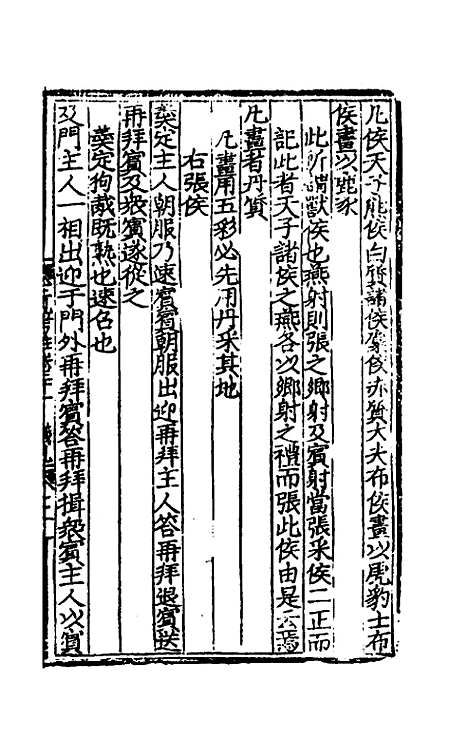 凡侯天子熊侯白質諸侯麋侯赤質大夫布侯畫以虎豹士布
侯畫以鹿豕
此所謂獸侯也燕射則張之鄉射及賓射當張采侯二正而
記此者天子諸侯之燕各以鄉射之禮而張此侯由是云焉
凡畫者丹質
凡畫用五彩必先用丹采其地
右張侯
羹定主人朝服乃速賓賓朝服出迎再拜主人答再拜退賓送
再拜賓及眾賓遂從之
羹定狗胾既熟也速召也
及門主人一相出迎于門外再拜賓答再拜揖眾賓主人以賓